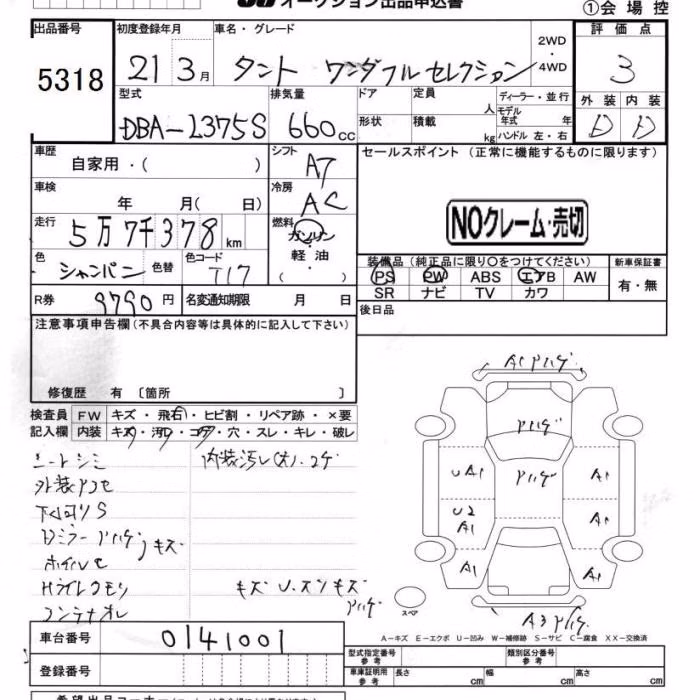 オークション出品申込書
①会場控
出品番号 初度登録年月 車名・グレード 2WD・4WD 評価点
5318 21 3月 タント ワンダフルセレクション 3
型式 排気量 ドア 定員 人 ディーラー・並行 外装 内装
DBA-L375S 660cc 形状 積載 kg モデル年式 年 ハンドル 左・右 D D
車歴 自家用・( ) シフト AT セールスポイント (正常に機能するものに限ります)
車検 年 月( 日) 冷房 AC
NOクレーム・売切
走行 5万7千378km 燃料 ガソリン・軽油・( )
色 シャンパン 色替 色コード T17
装備品(純正品に限り○をつけてください) 新車保証書
PS PW ABS エアB AW 有・無
SR ナビ TV カワ
R券 9790円 名変通知期限 月 日
後日品
注意事項申告欄(不具合内容等は具体的に記入して下さい)
修復歴 有 〔箇所 〕
検査員記入欄 FW キズ・飛石・ヒビ割・リペア跡・×要
内装 キズ・汚れ・コゲ・穴・スレ・キレ・破レ
シートシミ 内装汚レ(大)・コゲ
外装アコセ
下回りS
Dミラーアハゲ
キズ
ホイルセ
Hライトクモリ
キズ U・スンキズ
アハゲ
A1アハゲ
アハゲ
UA1 アハゲ A1
U2 A1 A1
A1 A1
スペア
A3アハゲ
A-キズ E-エクボ U-凹み W-補修跡 S-サビ C-腐食 XX-交換済
車台番号 0141001
型式指定番号 参考 類別区分番号 参考
登録番号
車庫証明用 参考 長さ cm 幅 cm 高さ cm
希望出品コーナー